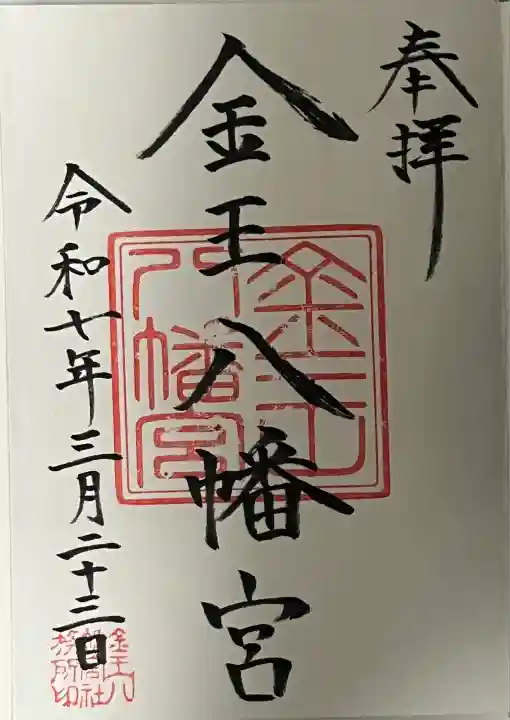 奉拝
金王八幡宮
金王
八幡宮
令和七年三月二十三日
金王八
幡宮社
務所印